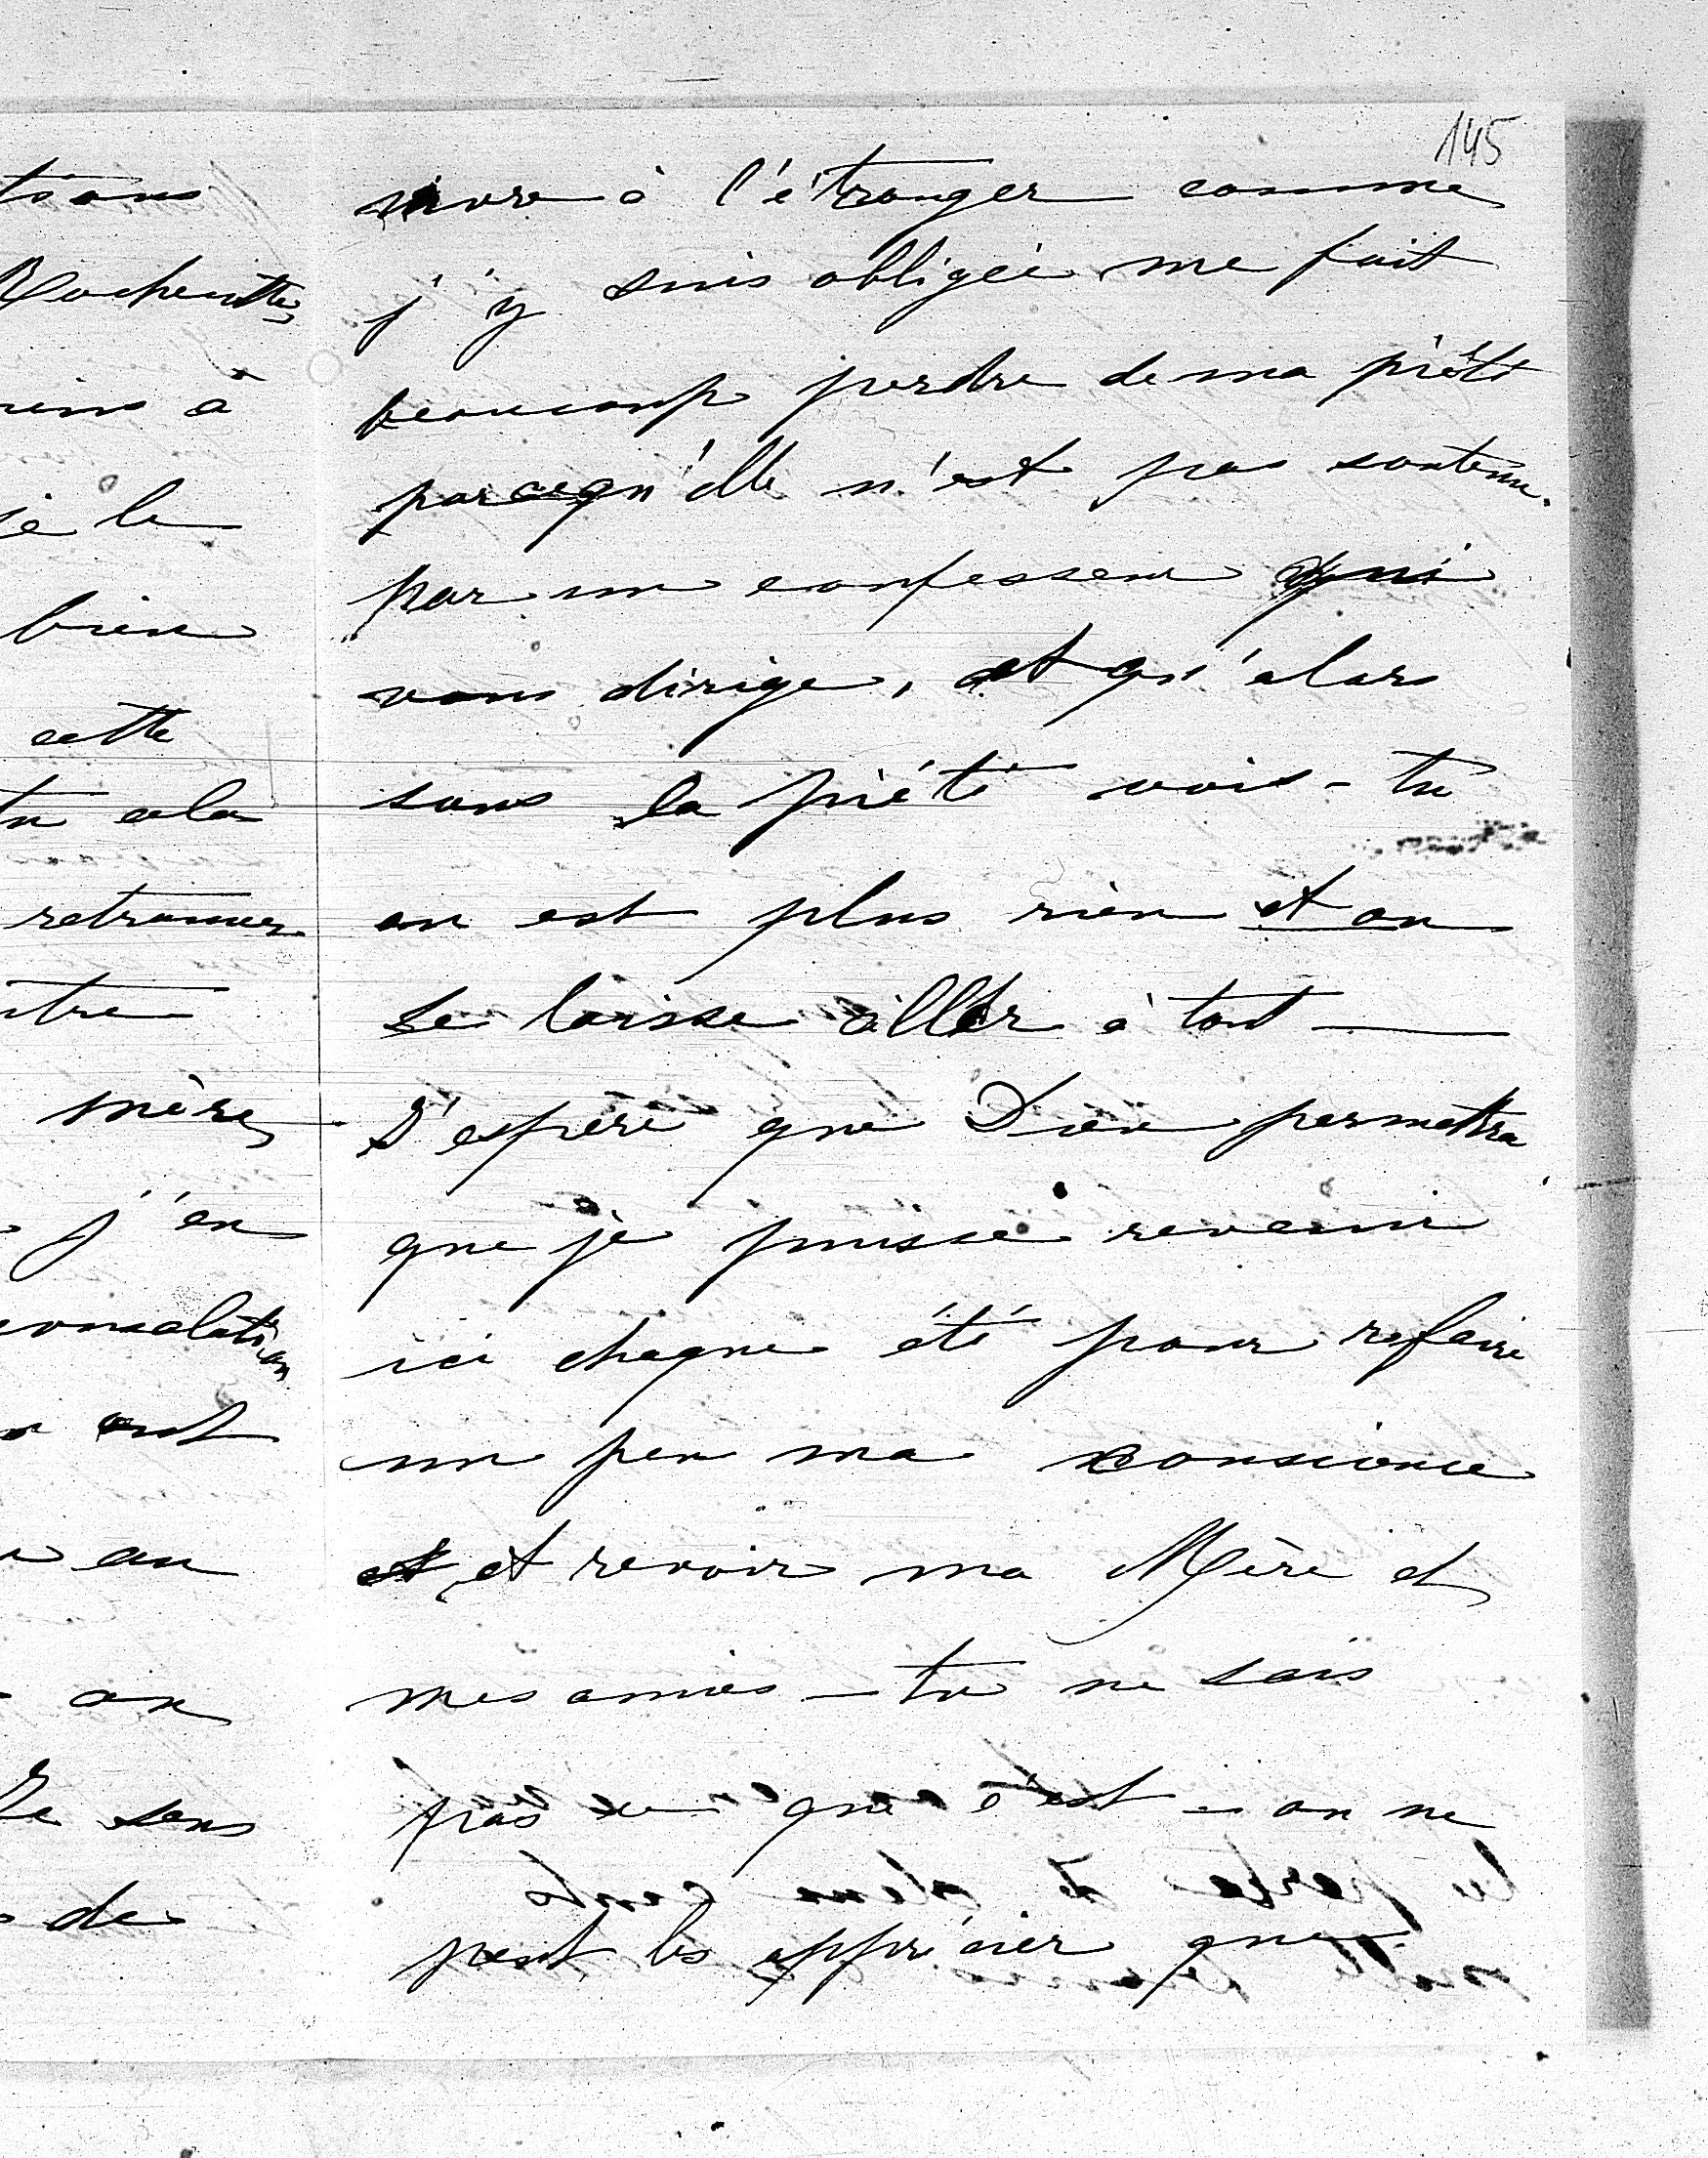 145
tions
Rochenttes
riens à
je le
bien
cette
tu cela
retrouver
ntre
mère
j'en
consolation
ont
au
on
Je sens
de
vivre à l'étranger comme
j'y suis obligée me fait
beaucoup perdre de ma piété
parcequ'elle n'est pas soutenu
par un confesseur qui
vous dirige, et qu'alors
sans la piété vois-tu
on est plus rien et on
se laisse aller à tout —
J'espère que Dieu permettra
que je puisse revenir
ici chaque été pour refaire
un peu ma consience
et et revoir ma Mère et
mes amies — tu ne sais
pas ce que c'est — on ne
peut les apprécier que